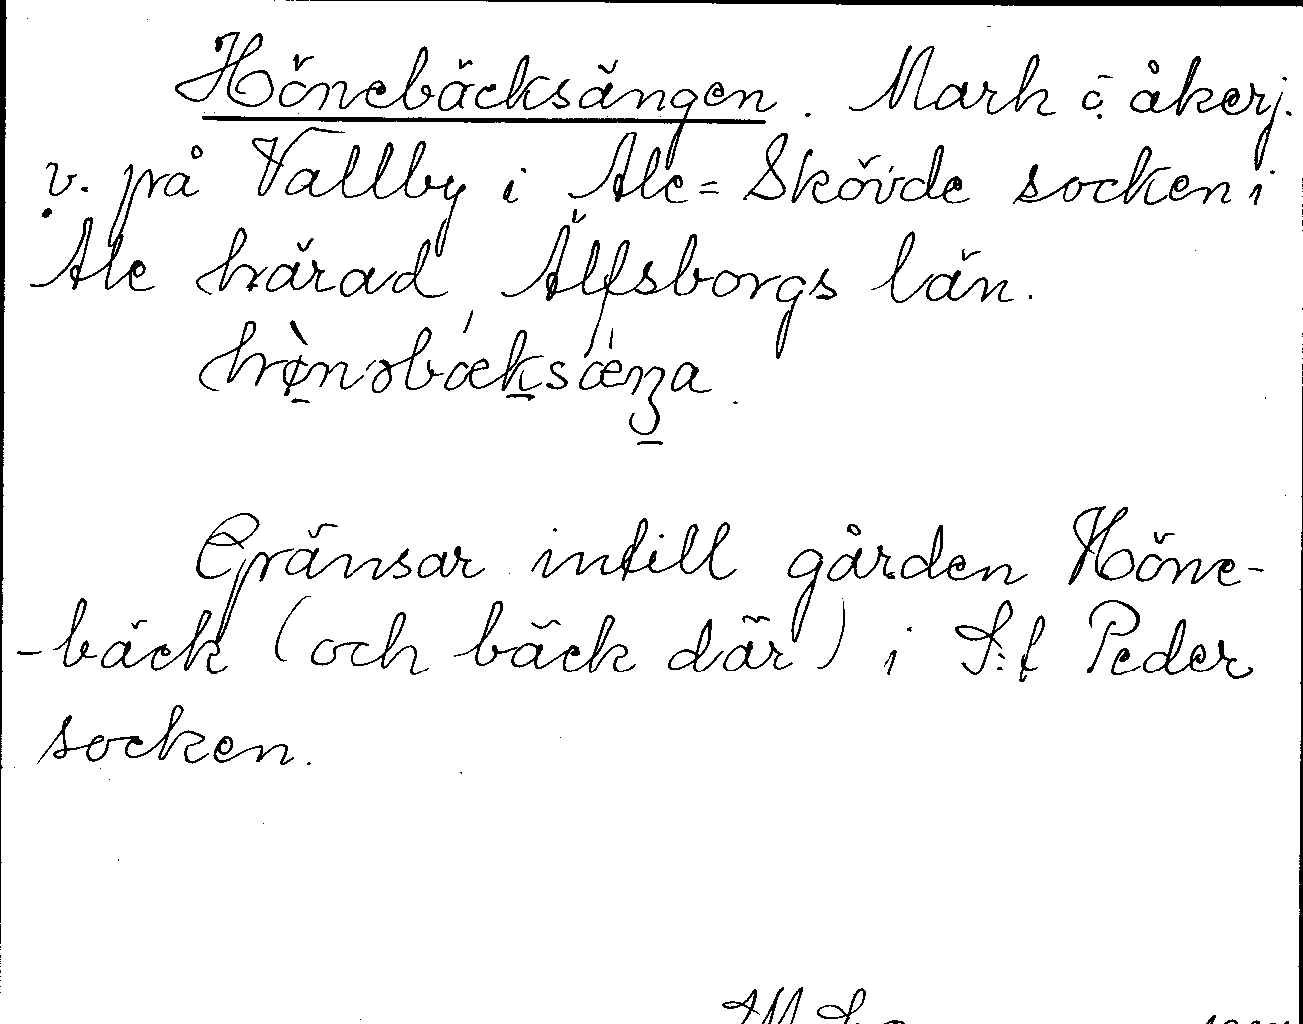 Hönebäcksängen. Mark o. åkerj.
v. på Vallby i Ale=Skövde socken i
Ale härad, Älfsborgs län.
hø̀nəbæksæŋa.
Gränsar intill gården Höne-
-bäck (och bäck där) i S:t Peder
socken.